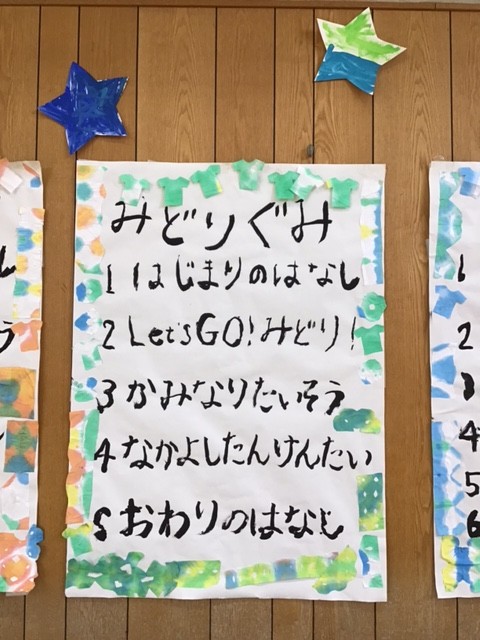 みどりぐみ
1 はじまりのはなし
2 Let's GO! みどり!
3 かみなりたいそう
4 なかよしたんけんたい
5 おわりのはなし
1
2
3
4
5
6